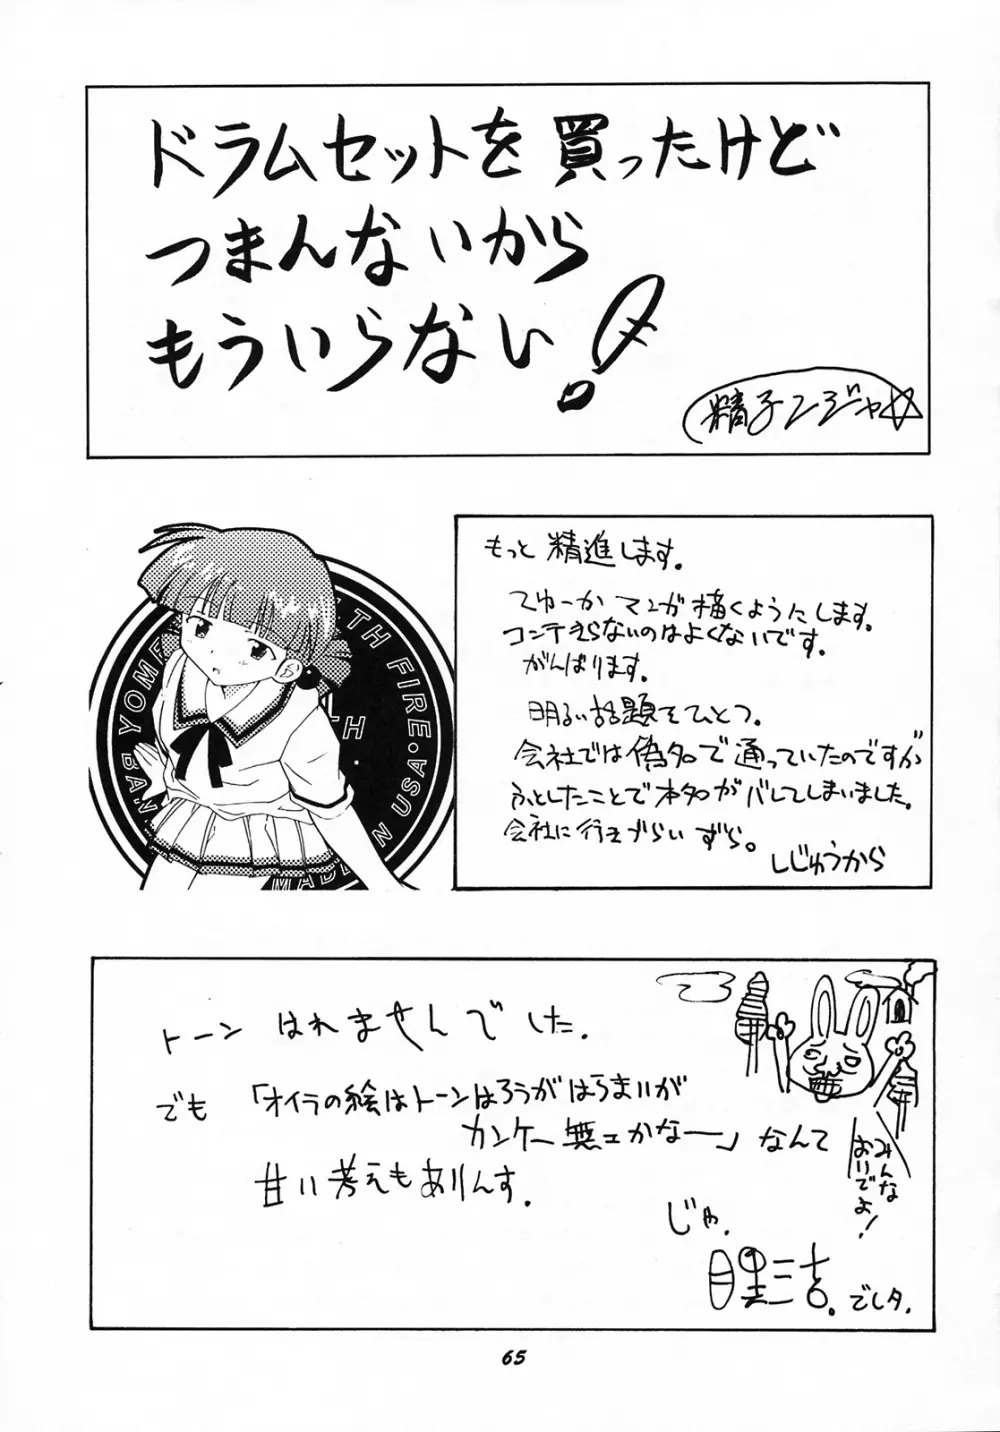 ドラムセットを買ったけど
つまんないから
もういらない!
精子ンジャ☆
もっと精進します。
てゆーかマンガ描くようにします。
コンテきらないのはよくないです。
がんばります。
明るい話題をひとつ。
会社では偽名で通っていたのですが
ふとしたことで本名がバレてしまいました。
会社に行きづらいずら。
しじゅうから
TH FIRE
USA
YOM
BAN
MADE
トーン はれませんでした.
でも「オイラの絵はトーンはろうがはらまいが
カンケー無エかなー」なんて
甘い考えもありんす.
みんな
おいでよ!
じゃ.
狸三吉. でしタ.
65